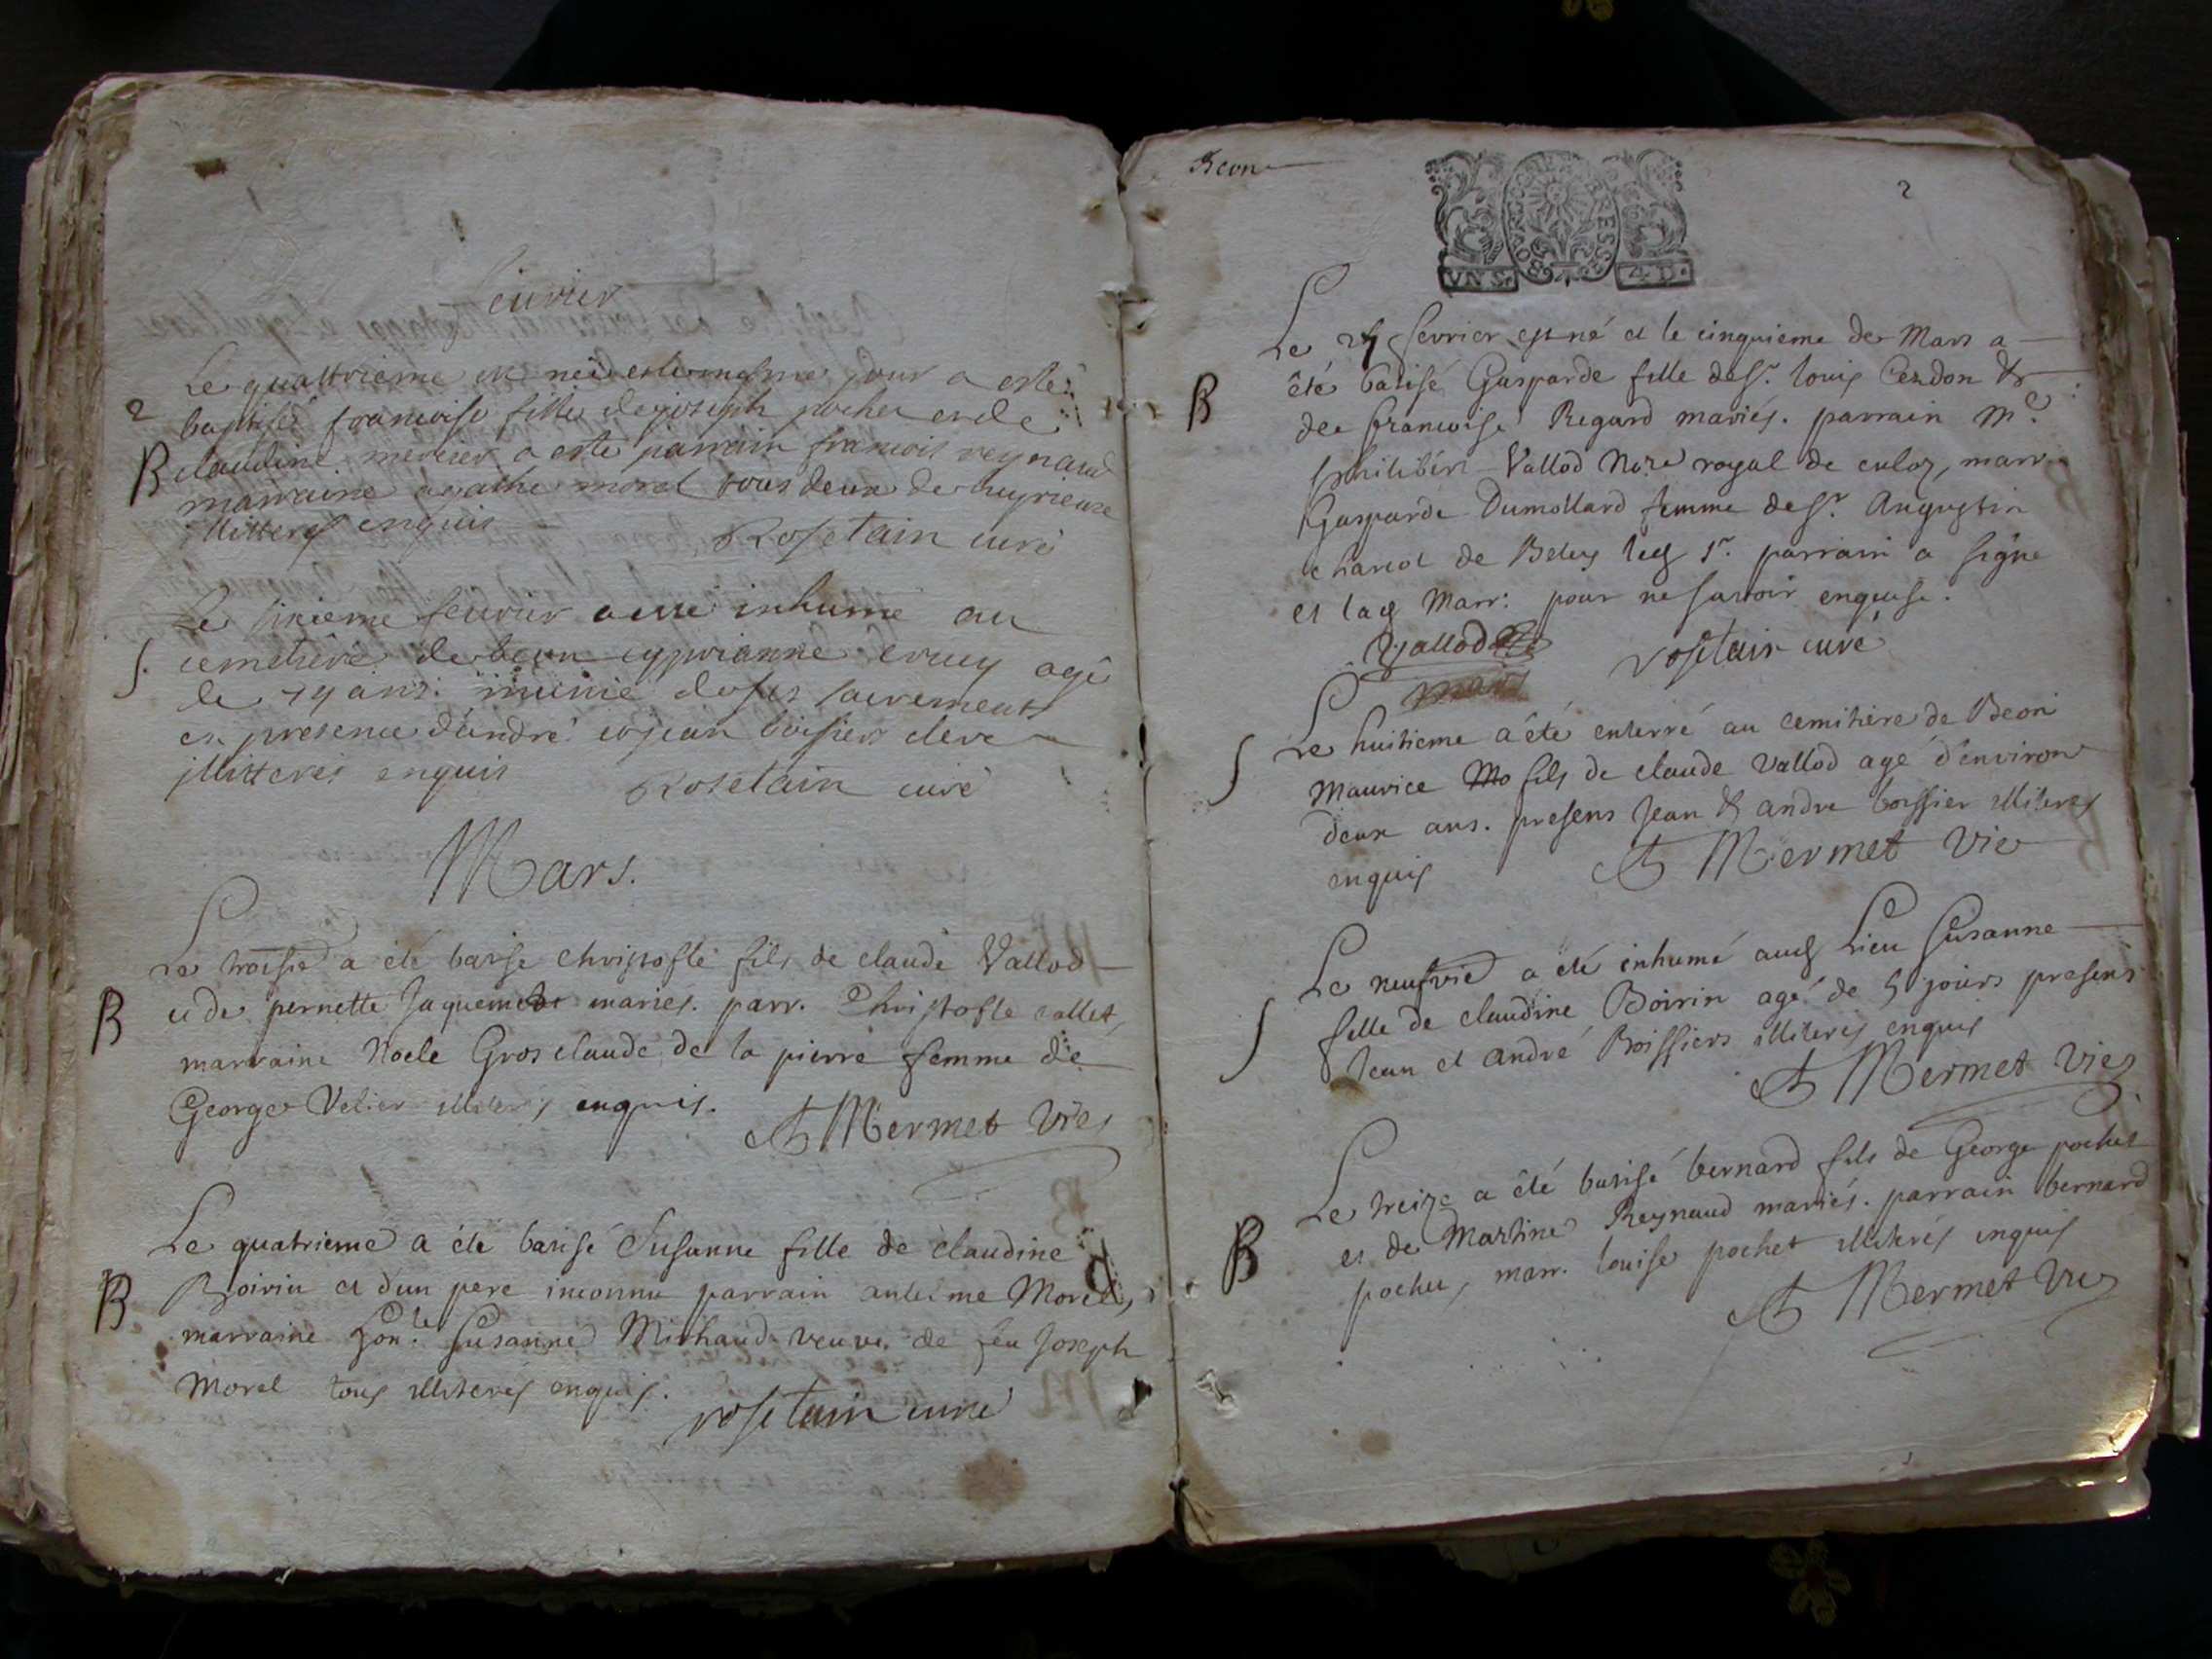 feurier
Le quattrieme est neè et le mesme jour a esté
2 baptisée francoise fille de joseph pochet et de
B claudine mercier a esté parrain francois reynaud
marraine agathe morel tous deux de
illitteres enquis Rosetain curé
Le sixieme feurier a esté inhumé au
S. cemetiere de beon cyprianne agé
de ans munie de ses sacrements
en presence d'andré et jean boissier clerc
illitteres enquis Rosetain curé
Mars.
Le troisie a été batisé christofle fils de claude Vallod
B et de pernette Jaquemet mariés. parr. Christofle callet,
marraine Noele Grosclaude de la pierre femme de
George Velier illiterés enquis. A Mermet Vic
Le quatrieme a été batisé Susanne fille de claudine
B Boirin et d'un pere inconnu parrain antelme Morel,
marraine hon.le Susanne Michaud veuve de feu Joseph
Morel tous illiterés enquis. rosetain curé
Beon
2
VN S. 4 D.
Le 27 fevrier est né et le cinquieme de Mars a
B été batisé Gasparde fille de Sr. louis Cerdon &
de francoise Regard mariés. parrain Me.
philibert Vallod No.re royal de culoz, marr.
Gasparde Dumollard femme de Sr. Augustin
charcot de Beley led Sr. parrain a signé
et lad Marr: pour ne savoir enquise.
Vallod rosetain curé
mars
Le huitieme a été enterré au cemitiere de Beon
S Maurice Mo fils de claude Vallod agé d'environ
deux ans. presens Jean & andre boissier illiteres
enquis A Mermet Vic
Le neufvie a été inhumé aud Lieu Susanne
S fille de claudine Boirin agé de 5 jours presens
Jean et andré Boissiers illiterés enquis
A Mermet Vic
Le treize a été batisé bernard fils de George pochet
B et de Martine Reynaud mariés. parrain bernard
pochet, marr. louise pochet illiterés enquis
A Mermet Vic